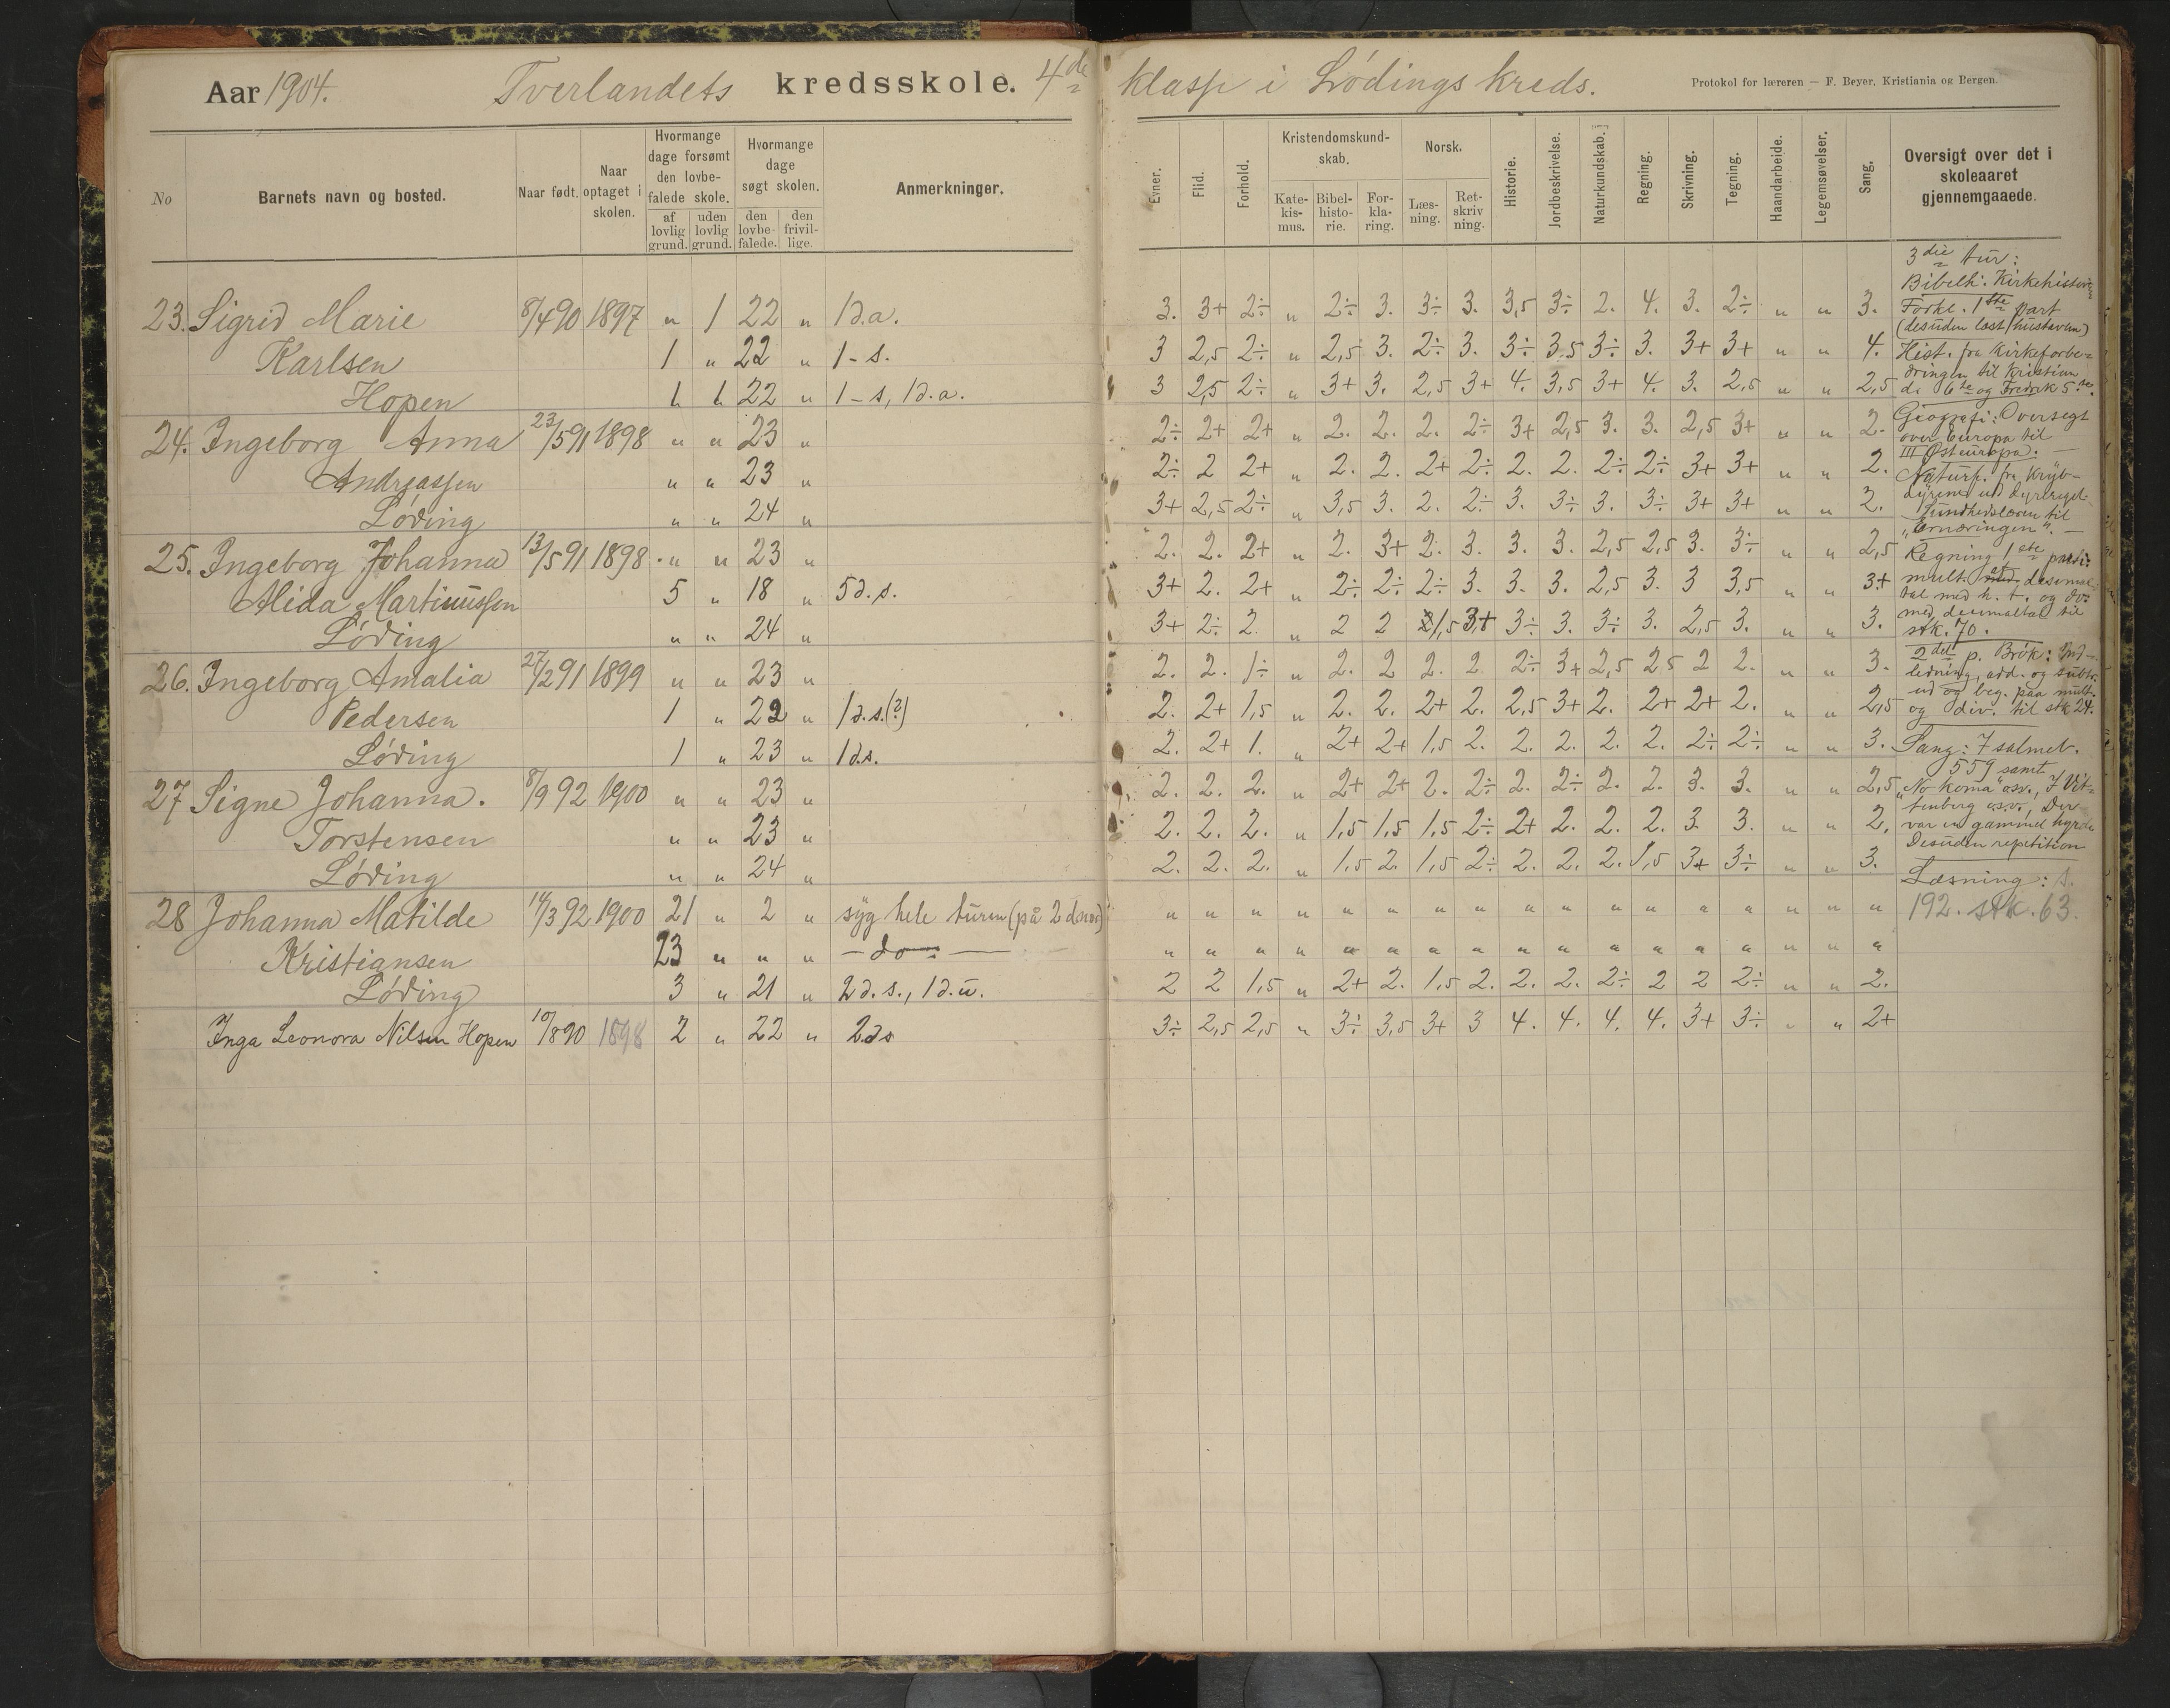 Aar 1904. Tverlandets kredsskole. 4de klasse i Lødings kreds. Protokol for læreren — F. Beyer, Kristiania og Bergen.
No Barnets navn og bosted. Naar født. Naar optaget i skolen. Hvormange dage forsømt den lovbefalede skole. af lovlig grund. uden lovlig grund. Hvormange dage søgt skolen. den lovbefalede. den frivillige. Anmerkninger.
Evner. Flid. Forhold. Kristendomskundskab. Katekismus. Bibelhistorie. Forklaring. Norsk. Læsning. Retskrivning. Historie. Jordbeskrivelse. Naturkundskab. Regning. Skrivning. Tegning. Haandarbeide. Legemsøvelser. Sang. Oversigt over det i skoleaaret gjennemgaaede.
23. Sigrid Marie 8/4 90 1897 " 1 22 " 1 d.a. 3. 3+ 2÷ " 2÷ 3. 3÷ 3. 3,5 3÷ 2. 4. 3. 2÷ " " 3.
Karlsen 1 " 22 " 1 - s. 3 2,5 2÷ " 2,5 3. 2÷ 3. 3÷ 3,5 3÷ 3. 3+ 3+ " " 4.
Hopen 1 1 22 " 1 - s, 1 d.a. 3 2,5 2÷ " 3+ 3. 2,5 3+ 4. 3,5 3+ 4. 3. 2,5 " " 2,5
24. Ingeborg Anna 23/5 91 1898 " " 23 " 2÷ 2+ 2+ " 2. 2. 2. 2÷ 3+ 2,5 3. 3. 2,5 3+ " " 2.
Andreassen " " 23 " 2÷ 2 2+ " 2. 2. 2+ 2÷ 2. 2. 2÷ 2÷ 3+ 3+ " " 2.
Løding " " 24 " 3+ 2,5 2÷ " 3,5 3. 2. 2÷ 3. 3÷ 3. 3÷ 3+ 3+ " " 2.
25. Ingeborg Johanna 13/5 91 1898 " " 23 " 2. 2. 2+ " 2. 3+ 2. 3. 3. 3. 2,5 2,5 3. 3÷ " " 2,5
Alida Martinussen 5 " 18 " 5 d.s. 3+ 2. 2+ " 2÷ 2÷ 2÷ 3. 3. 3. 2,5 3. 3 3,5 " " 3+
Løding " " 24 " 3+ 2÷ 2. " 2 2 1,5 3+ 3÷ 3. 3÷ 3. 2,5 3. " " 3.
26. Ingeborg Amalia 27/2 91 1899 " " 23 " 2. 2. 1÷ " 2. 2 2. 2 2÷ 3+ 2,5 2,5 2 2. " " 3.
Pedersen 1 " 22 " 1 d.s.(?) 2. 2+ 1,5 " 2. 2. 2+ 2. 2,5 3+ 2. 2+ 2+ 2. " " 2,5
Løding 1 " 23 " 1 d.s. 2. 2+ 1. " 2+ 2+ 1,5 2. 2. 2. 2. 2. 2÷ 2÷ " " 3.
27 Signe Johanna. 8/9 92 1900 " " 23 " 2. 2. 2. " 2+ 2+ 2. 2÷ 2. 2÷ 2. 2. 3. 3. " " 2,5
Torstensen " " 23 " 2. 2. 2. " 1,5 1,5 1,5 2÷ 2+ 2. 2. 2. 3. 3. " " 2.
Løding " " 24 " 2. 2. 2. " 1,5 2. 1,5 2÷ 2. 2. 2. 1,5 3+ 3÷ " " 3.
28 Johanna Matilde 14/3 92 1900 21 " 2 " syg hele turen (på 2 d nær) " " " " " " " " " " " " " " " " "
Kristiansen 23 " " " — do — " " " " " " " " " " " " " " " " "
Løding 3 " 21 " 2 d.s., 1 d.u. 2 2 1,5 " 2+ 2. 1,5 2. 2. 2. 2÷ 2 2 2÷ " " 2.
Inga Leonora Nilsen Hopen 10/8 90 1898 2 " 22 " 2 ds 3÷ 2,5 2,5 " 3÷ 3,5 3+ 3 4. 4. 4. 4. 3+ 3÷ " " 2+
3die tur:
Bibelh: Kirkehistorie
Forkl. 1ste part
(desuden læst hustavlen)
Hist. fra Kirkeforbe-
dringen til Kristian
d. 6te og Fredrik 5te.
Geografi: Oversigt
over Europa til
III Østeuropa. —
Naturk. fra Kryb-
dyrene ud dyreriget.
Sundhedslæren til
"Ernæringen". —
Regning 1ste parti:
mult. desimal-
tal med h. t. og div.
med decimaltal til
stk. 70.
2del p. Brøk: Ind-
ledning, add. og subtr.
ud og beg. paa mult.
og div. til stk 24.
Sang: 7 salmer.
559 samt
"No koma" osv., I Vit-
tenberg o.s.v., Der
var en gammel hyrde
Desuden repetition
Læsning: s.
192. stk. 63.